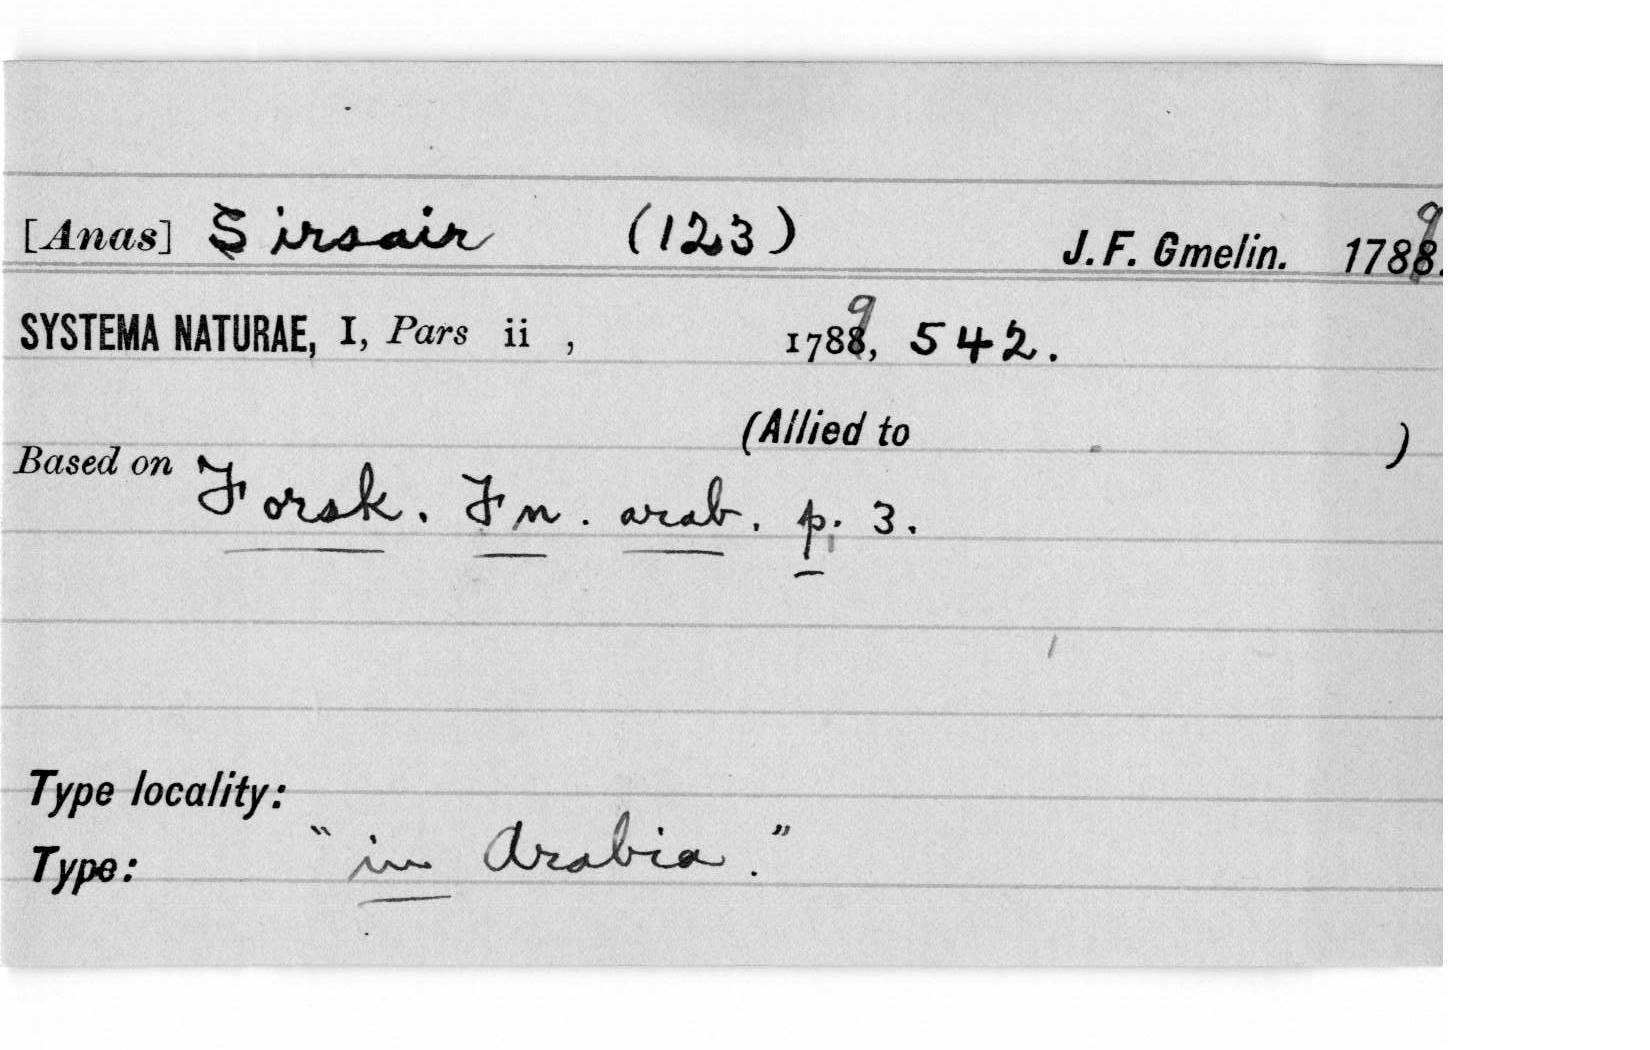 [Anas] Sirsair (123) J. F. Gmelin. 1789.
SYSTEMA NATURAE, I, Pars ii , 1789, 542.
(Allied to )
Based on Forsk. Fn. arab. p. 3.
Type locality:
Type: "in Arabia."